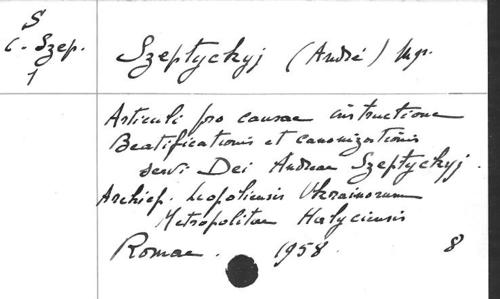 S
C - Szep.
1
Szeptyckyj (André) Mgr.
Articuli pro causae instructione
Beatificationis et canonizationis
servi Dei Andreae Szeptyckyj.
Archiep. Leopoliensis Ukrainorum
Metropolitae Halyciensis
Romae. 1958. 8